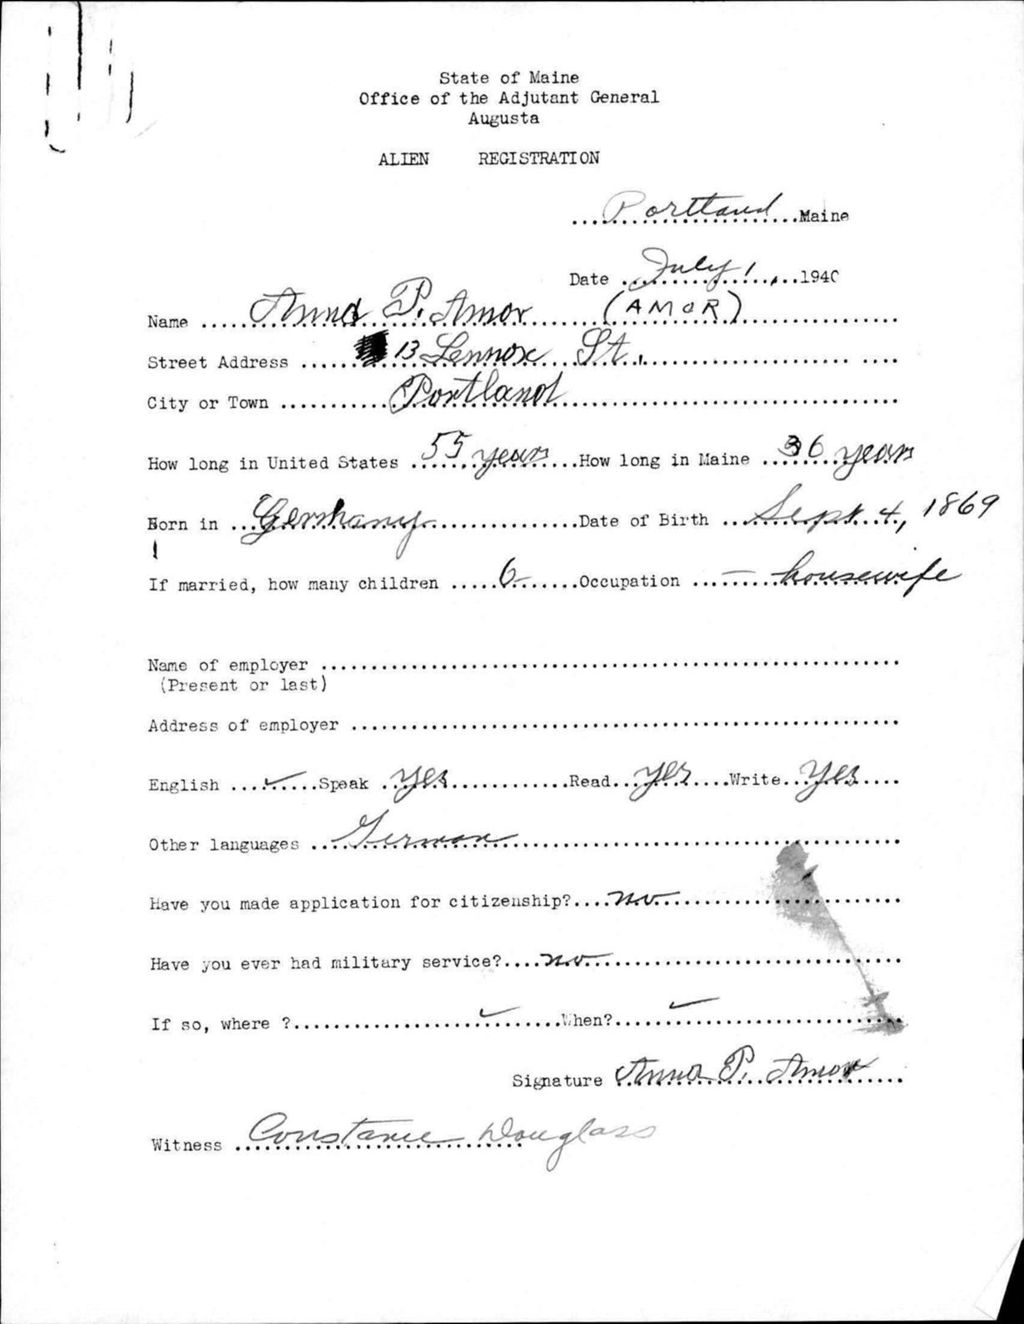 State of Maine
Office of the Adjutant General
Augusta
ALIEN REGISTRATION
....Portland....Maine
Date ....July 1,....1940
Name ....Anna P. Amor....(AMOR)....
Street Address ....13 Lennox St.,....
City or Town ....Portland....
How long in United States ....55 years....How long in Maine ....36 years
Born in ....Germany....Date of Birth ....Sept. 4, 1869
If married, how many children ....6....Occupation ....— housewife
Name of employer ....
(Present or last)
Address of employer ....
English ....✓....Speak ....yes....Read....yes....Write....yes....
Other languages ....German....
Have you made application for citizenship?....no....
Have you ever had military service?....no....
If so, where ?....✓....When?....✓....
Signature ....Anna P. Amor....
Witness ....Constance Douglass